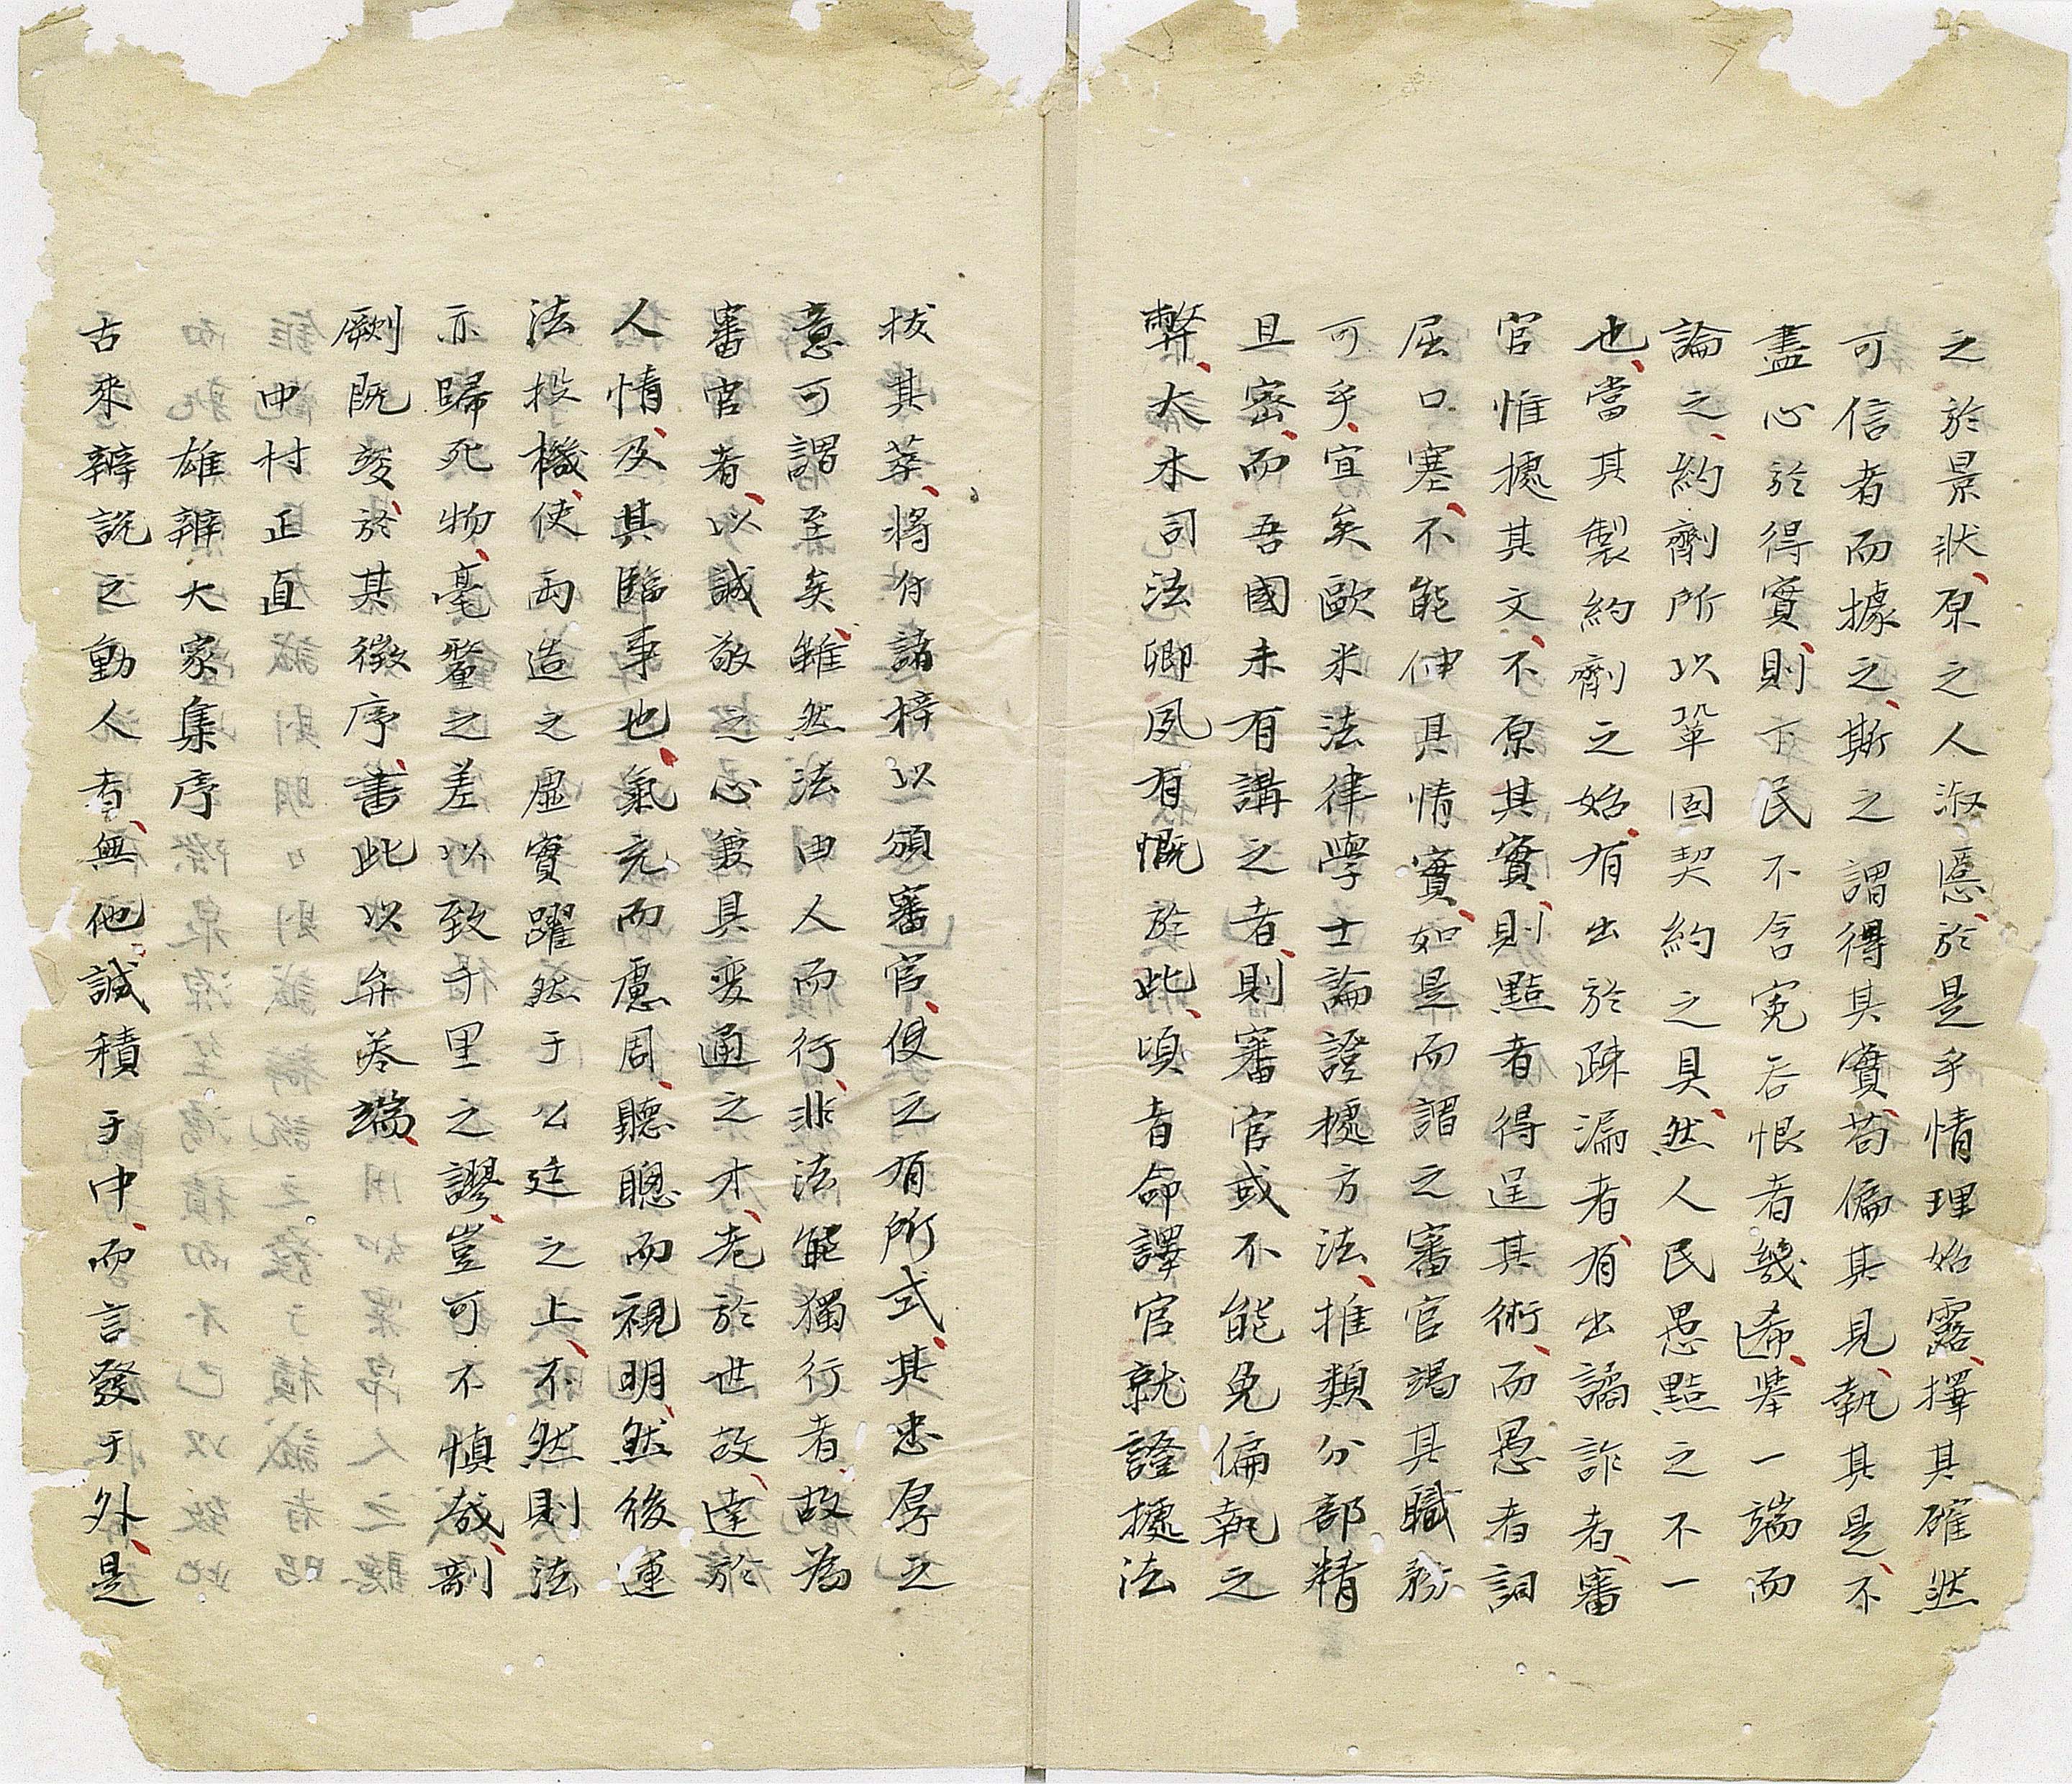 之於景狀、原之人淑慝、於是乎情理始露、擇其確然
可信者而據之、斯之謂得其實、苟偏其見、執其是、不
盡心於得實、則下民不含冤呑恨者幾希、舉一端而
論之、約劑所以鞏固契約之具、然人民愚黠之不一
也、當其製約劑之始、有出於疎漏者、有出譎詐者、審
官惟據其文、不原其實、則黠者得逞其術、而愚者詞
屈口塞、不能伸具情實、如是而謂之審官竭其職務
可乎、宜矣歐米法律學士論證據方法、推類分部精
且密、而吾國未有講之者、則審官或不能免偏執之
弊、大木司法卿夙有慨於此、頃者命譯官就證據法
拔其萃、將付諸梓以頒審官、使之有所式、其忠厚之
意可謂至矣、雖然法由人而行、非法能獨行者、故爲
審官者、以誠敬之心兼具変通之才、老於世故、達於
人情、及其臨事也、氣充而慮周、聽聰而視明、然後運
法投機、使両造之虛實躍然于公廷之上、不然則法
亦歸死物、毫釐之差以致千里之謬、豈可不慎哉、剞
劂既竣、於其徵序、書此以弁卷端、
中村正直
雄辨大家集序
古來辨説之動人者、無他、誠積于中、而言發于外、是